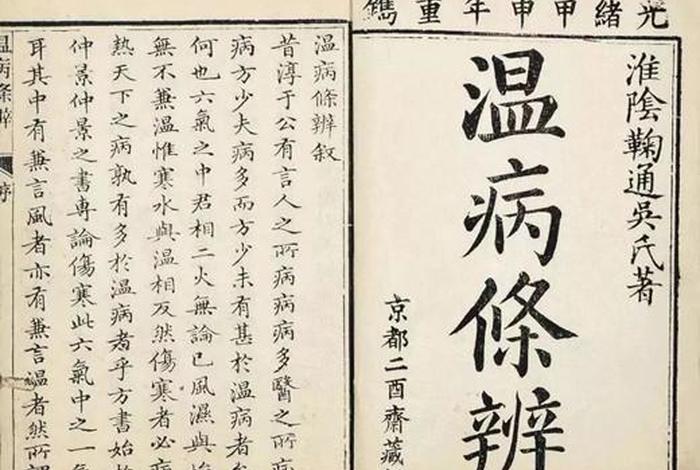 光緒甲申年重鐫
淮陰鞠通吳氏著
温病條辨
京都二酉齋藏
温病條辨敘
昔淳于公有言人之所病病病多醫之所病
病方少夫病多而方少未有甚於温病者矣
何也六氣之中君相二火無論已風濕與
無不兼温惟寒水與温相反然傷寒者必病
熱天下之病孰有多於温病者乎方書始於
仲景仲景之書專論傷寒此六氣中之一氣
耳其中有兼言風者亦有兼言温者然所謂
温病條辨
序